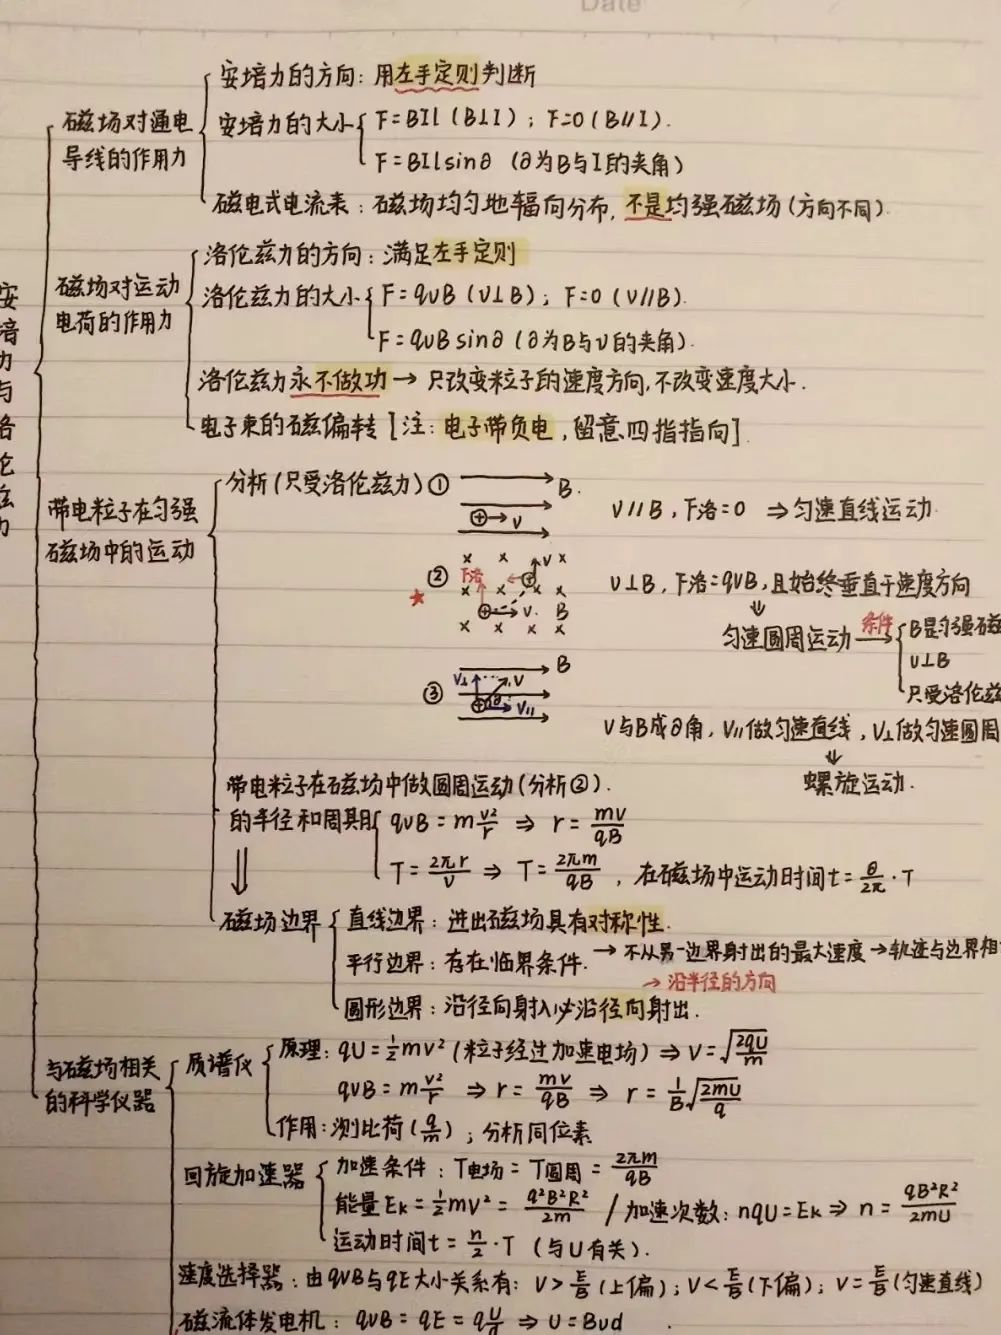 Date
安培力与洛伦兹力
磁场对通电
导线的作用力
安培力的方向：用左手定则判断
安培力的大小
F=BIl（B⊥I）；F=0（B∥I）.
F=BIlsin∂（∂为B与I的夹角）
磁电式电流表：磁场均匀地辐向分布，不是均强磁场（方向不同）.
磁场对运动
电荷的作用力
洛伦兹力的方向：满足左手定则
洛伦兹力的大小
F=qvB（v⊥B）；F=0（v∥B）.
F=qvBsin∂（∂为B与v的夹角）.
洛伦兹力永不做功→只改变粒子的速度方向，不改变速度大小.
电子束的磁偏转[注：电子带负电，留意四指指向]
带电粒子在匀强
磁场中的运动
分析（只受洛伦兹力）①
B
⊕→v
v∥B，F洛=0 ⇒匀速直线运动
②
× × v ×
F洛
× × × ×
⊕→v B
× × × ×
★
v⊥B，F洛=qvB，且始终垂直于速度方向
⇓
匀速圆周运动
条件
B是匀强磁
v⊥B
只受洛伦兹
③
B
v⊥ v
⊕ ∂ v∥
v与B成∂角，v∥做匀速直线，v⊥做匀速圆周
⇓
螺旋运动.
带电粒子在磁场中做圆周运动（分析②）.
的半径和周期
qvB=m v²/r ⇒ r=mv/qB
T=2πr/v ⇒ T=2πm/qB，在磁场中运动时间t=θ/2π·T
⇓
磁场边界
直线边界：进出磁场具有对称性.
平行边界：存在临界条件.→不从另一边界射出的最大速度→轨迹与边界相
→沿半径的方向
圆形边界：沿径向射入必沿径向射出.
与磁场相关
的科学仪器
质谱仪
原理：qU=½mv²（粒子经过加速电场）⇒v=√(2qU/m)
qvB=m v²/r ⇒ r=mv/qB ⇒ r=1/B√(2mU/q)
作用：测比荷（q/m）；分析同位素
回旋加速器
加速条件：T电场=T圆周=2πm/qB
能量Ek=½mv²=q²B²R²/2m / 加速次数：nqU=Ek⇒n=qB²R²/2mU
运动时间t=n/2·T（与U有关）.
速度选择器：由qvB与qE大小关系有：v>E/B（上偏）；v<E/B（下偏）；v=E/B（匀速直线）
磁流体发电机：qvB=qE=qU/d ⇒U=Bvd